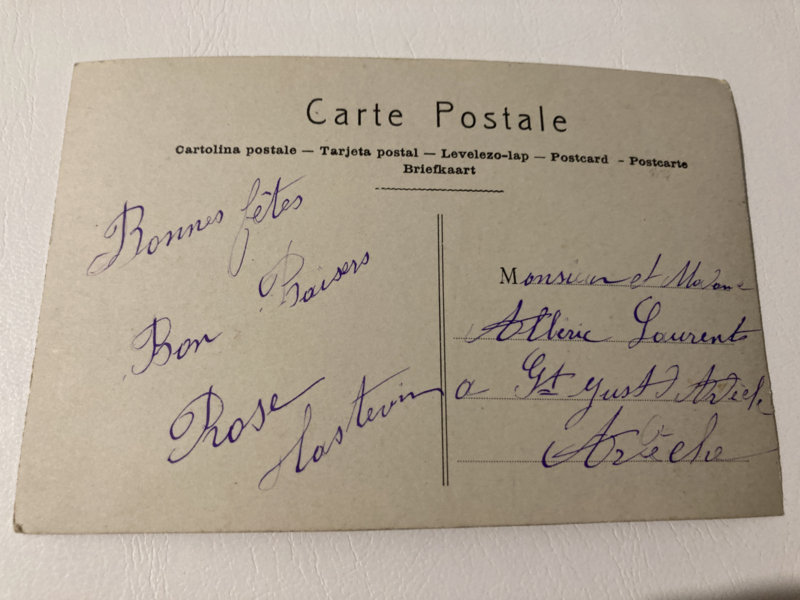 Carte Postale
Cartolina postale — Tarjeta postal — Levelezo-lap — Postcard - Postcarte
Briefkaart
Bonnes fêtes
Bon Baisers
Rose
Hastevin
Monsieur et Madame
Laurent
a St Just d'Ardèche
Ardèche